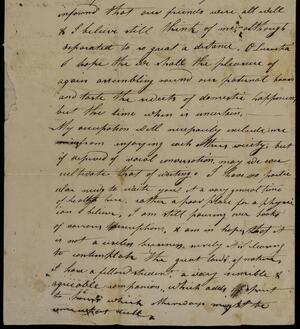 informed that our friends were all well
& I believe still think of me, although
separated to so great a distance. O Lucretia
I hope the we shall the pleasure of
again assembling round our paternal board
and taste the sweets of domestic happiness
but the time when is uncertain.
My occupation will necessarily exclude me
from enjoying each others society; but
if deprived of social conversation, may we
cultivate that of writing. I have no partic
ular news to write you, it a very general time
of health here, rather a poor place for a physic
ian I believe, I am still pouring over books
of various descriptions, & am in hopes that it
is not a useless business, surely it is pleasing
to contemplate the great laws of nature,
I have a fellow student a very sensible &
agreeable companion, which adds
to which might be
somewhat dull